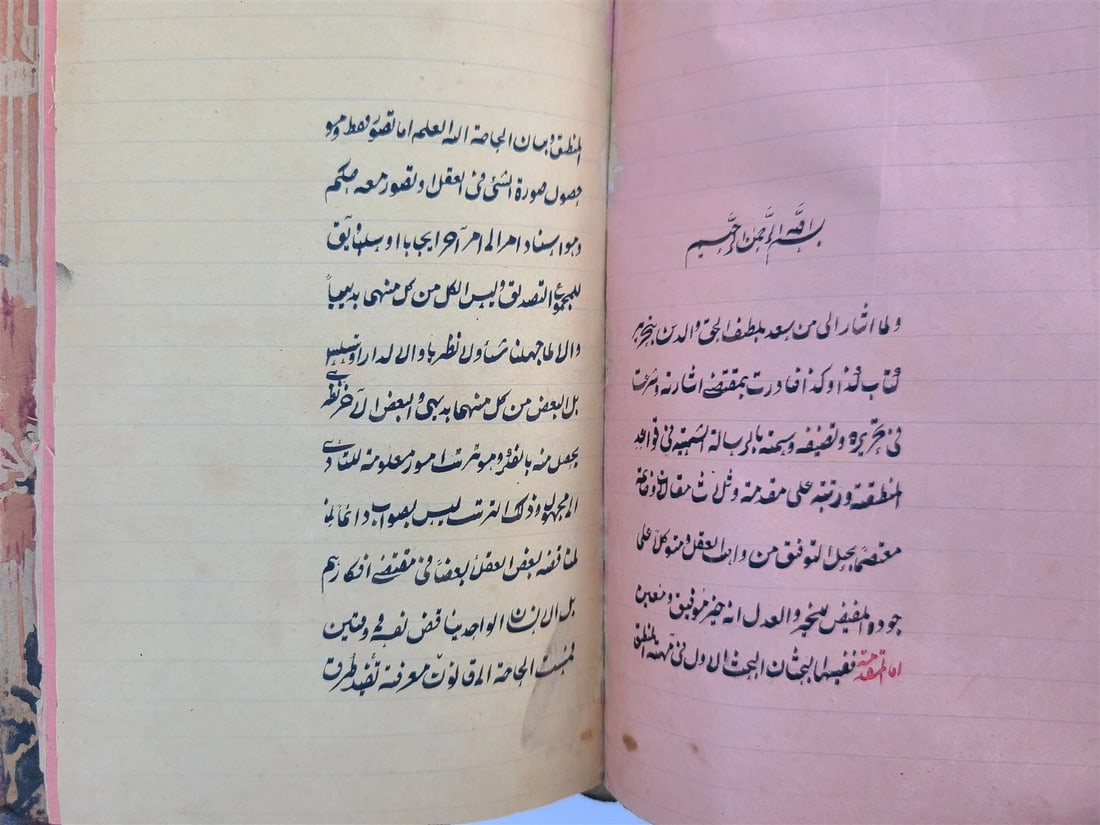 بسم الله الرحمن الرحيم
ولما اشار الى من سعد بلطف الحق والدين بتحرير
كتاب فذا وكذا فبادرت بمقتضى اشارته وشرعت
فى تحريره وتصنيفه وسمته بالرسالة الشمسية فى قواعد
المنطقية ورتبته على مقدمة وثلاث مقالات وخاتمة
معتصما بحبل التوفيق من واهب العقل ومتوكلا على
جوده المفيض للخير والعدل انه خير موفق ومعين
اما المقدمة ففيها البحثان البحث الاول فى مهية المنطق
المنطق وبيان الحاجة اليه العلم اما تصور فقط وهو
حصول صورة الشئ فى العقل او تصور معه حكم
وهو اسناد امر الى امر آخر ايجابا او سلبا ويق
للمجموع التصديق وليس الكل من كل منهما بديهيا
والا لما جهلنا شيأ ولا نظريا والا لدار او تسلسل
بل البعض من كل منهما بديهى والبعض الآخر نظرى
يحصل منه بالفكر وهو ترتيب امور معلومة للتادى
الى مجهول وذلك الترتيب ليس بصواب دائما لما
لمناقضة بعض العقلا بعضا فى مقتضى افكارهم
بل الانسان الواحد يناقض نفسه فى وقتين
فمست الحاجة الى قانون معرفة تفيد طرق